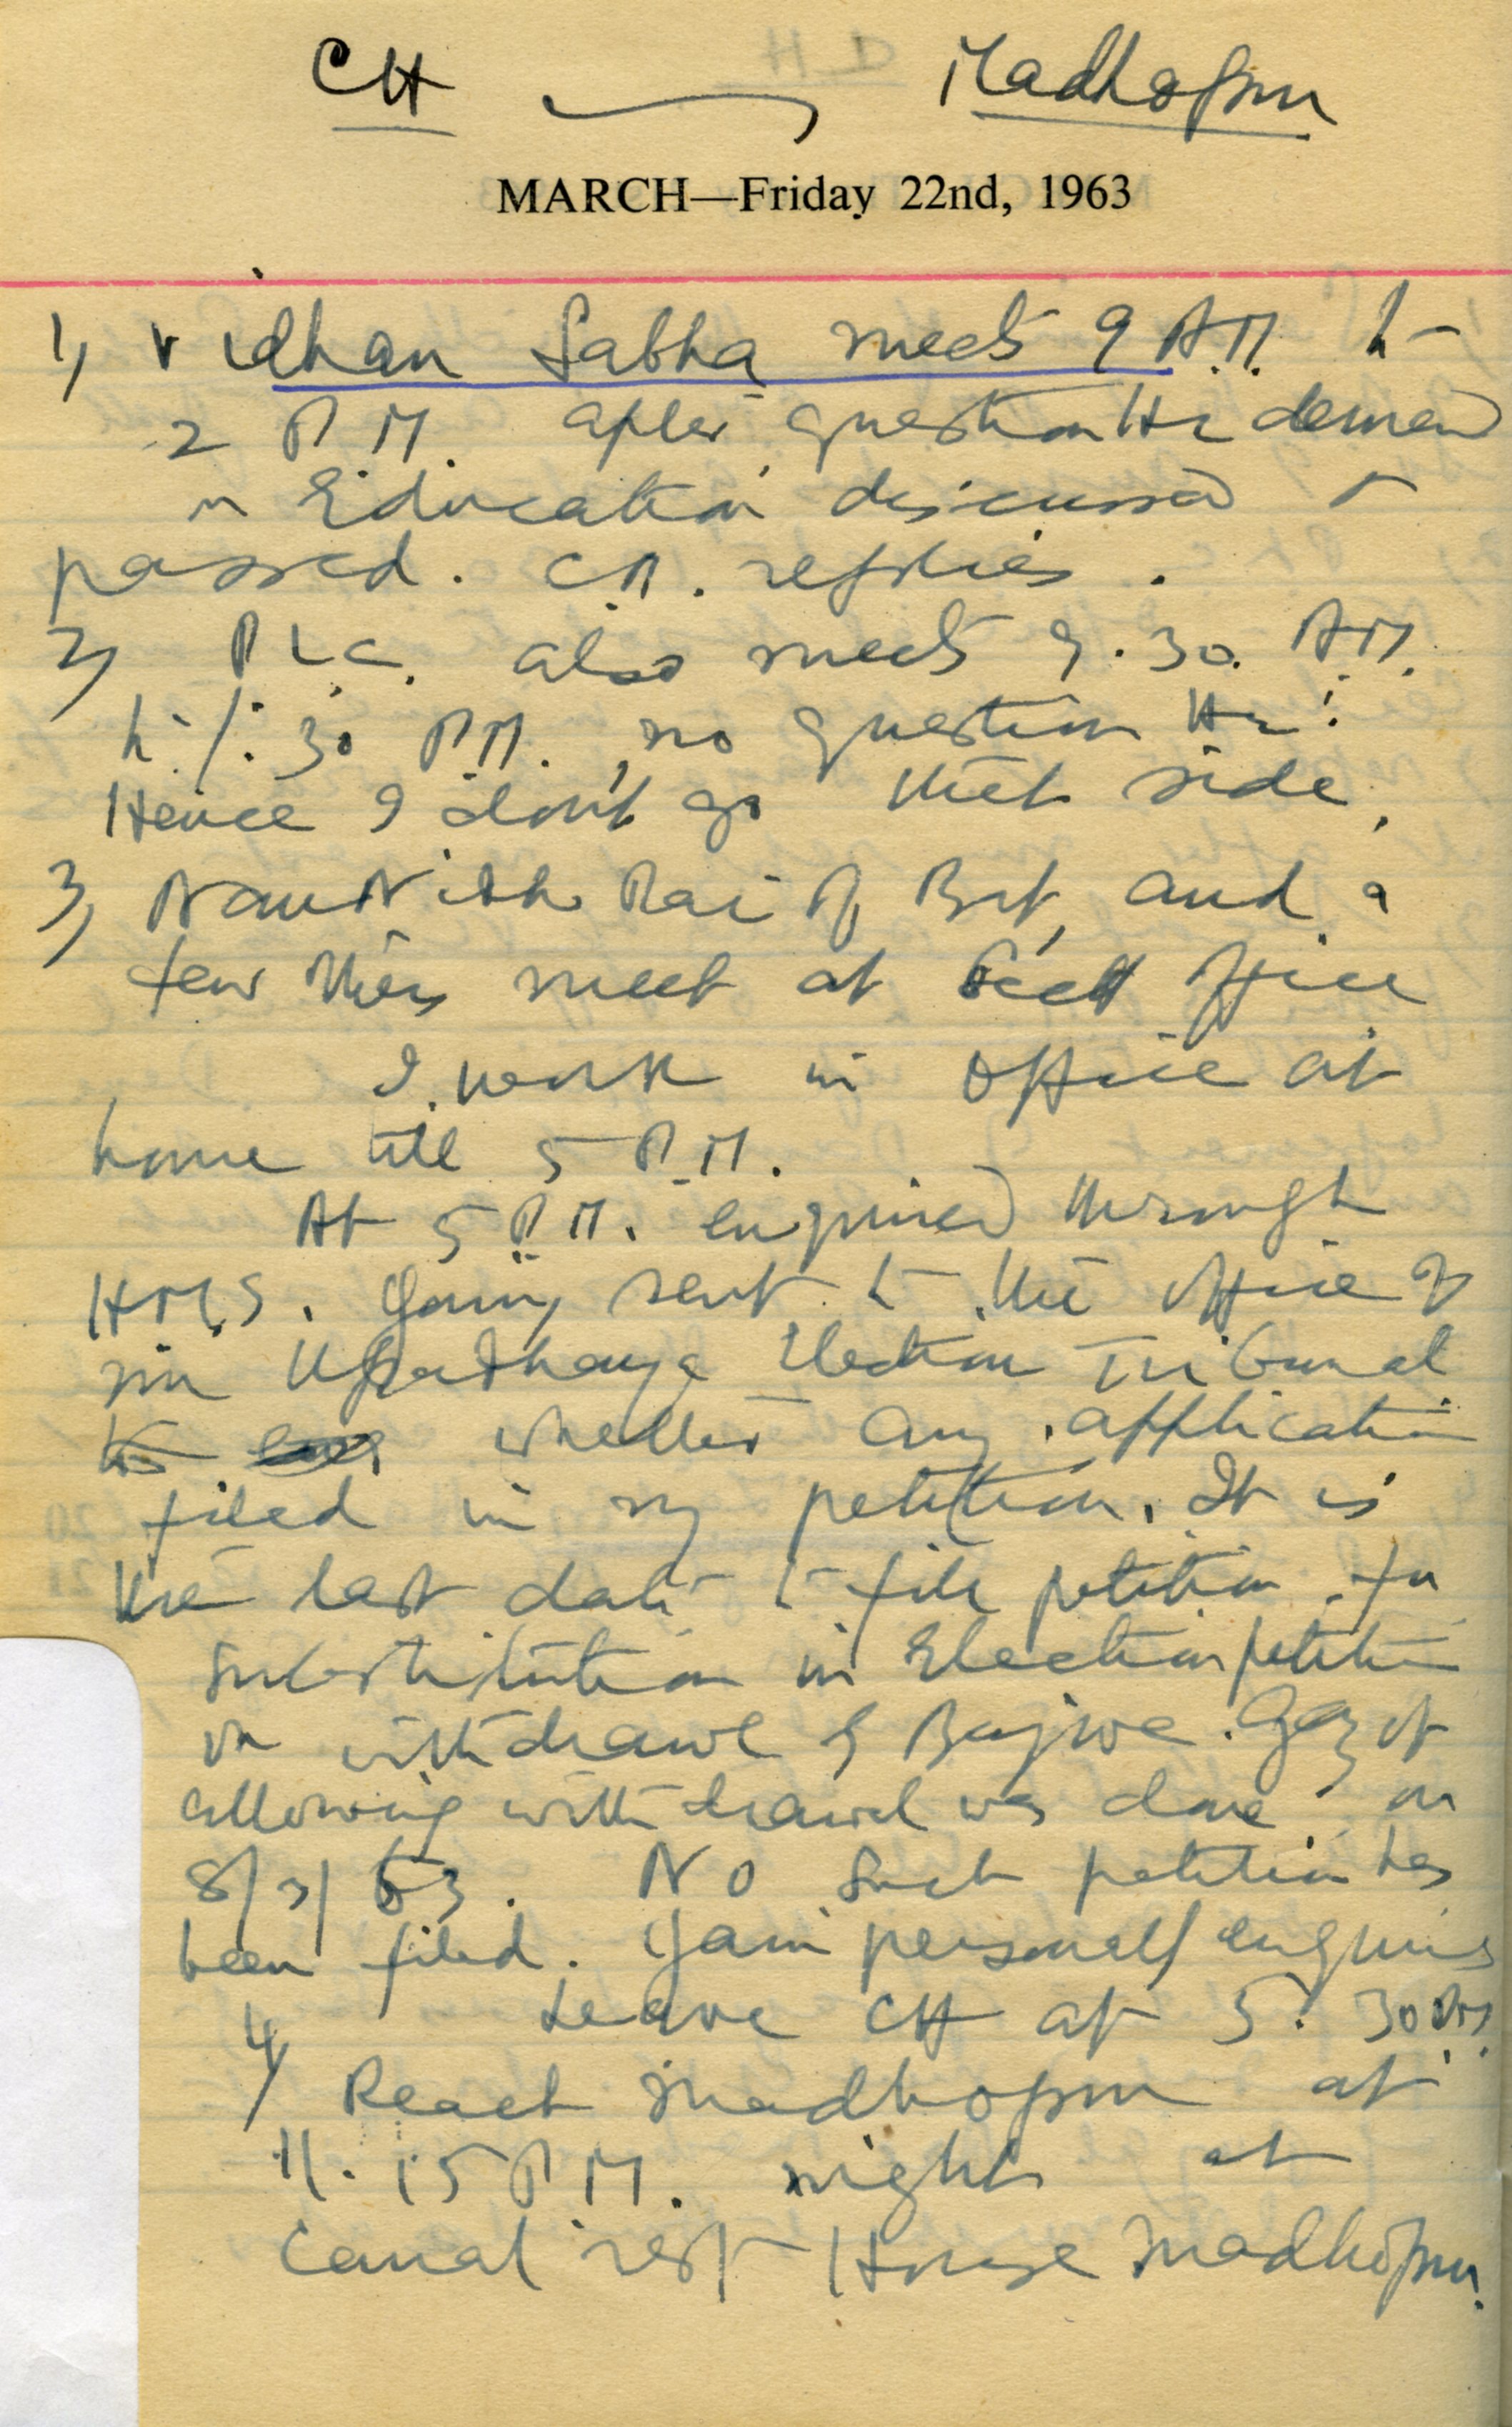 CH Madhopur
MARCH—Friday 22nd, 1963
1) Vidhan Sabha meets 9 A.M. to
2 P.M. after question Hr demand
on Education discussed &
passed. C.P. replies.
2) P.L.C. also meets 9.30. A.M.
to 1.30 P.M. no question Hr.
Hence I don't go that side.
3) NauNidh Rai of Bt, and a
few others meet at Sectt office
I work in office at
home till 5 P.M.
At 5 P.M. enquired through
H.M.S. Gaini, sent to the office of
Upadhaya Election Tribunal
to whether any application
filed in my petition. It is
the last date to file petition for
substitution in Election petition
on withdrawl of Bajwa. Gaz of
allowing withdrawal was done on
8/3/63. No such petition has
been filed. Gaini personally enquires
4) Leave CH at 5.30 PM
Reach Madhopur at
11.15 P.M. night at
Canal rest House Madhopur.